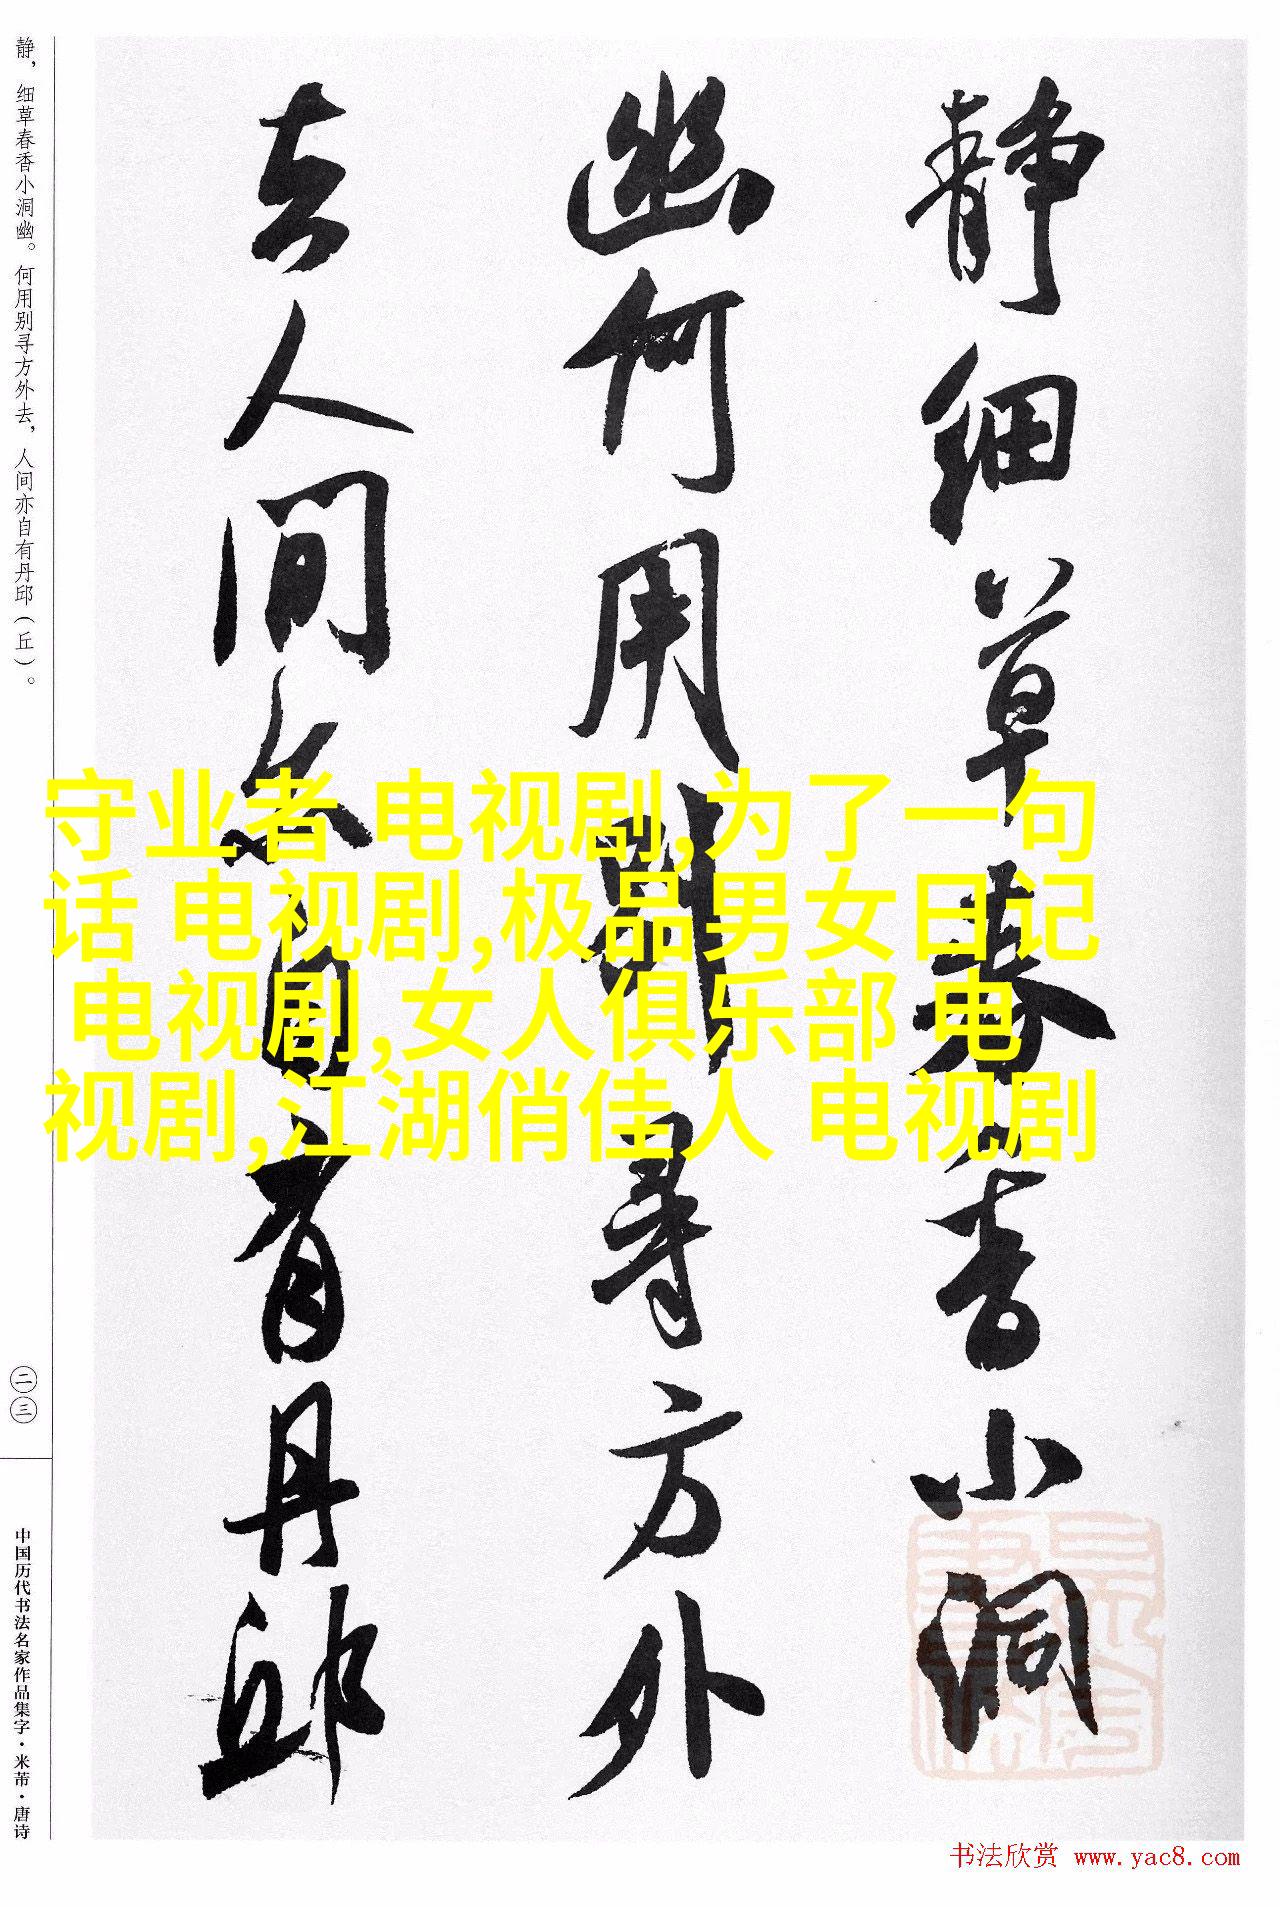 静细草春香小洞
幽何用别寻方外
去人间亦自有丹邱
静，细草春香小洞幽。何用别寻方外去，人间亦自有丹邱（丘）。
二三
中国历代书法名家作品集字·米芾·唐诗
守业者 电视剧,为了一句
话 电视剧,极品男女日记
电视剧,女人俱乐部 电
视剧,江湖俏佳人 电视剧
书法欣赏 www.yac8.com